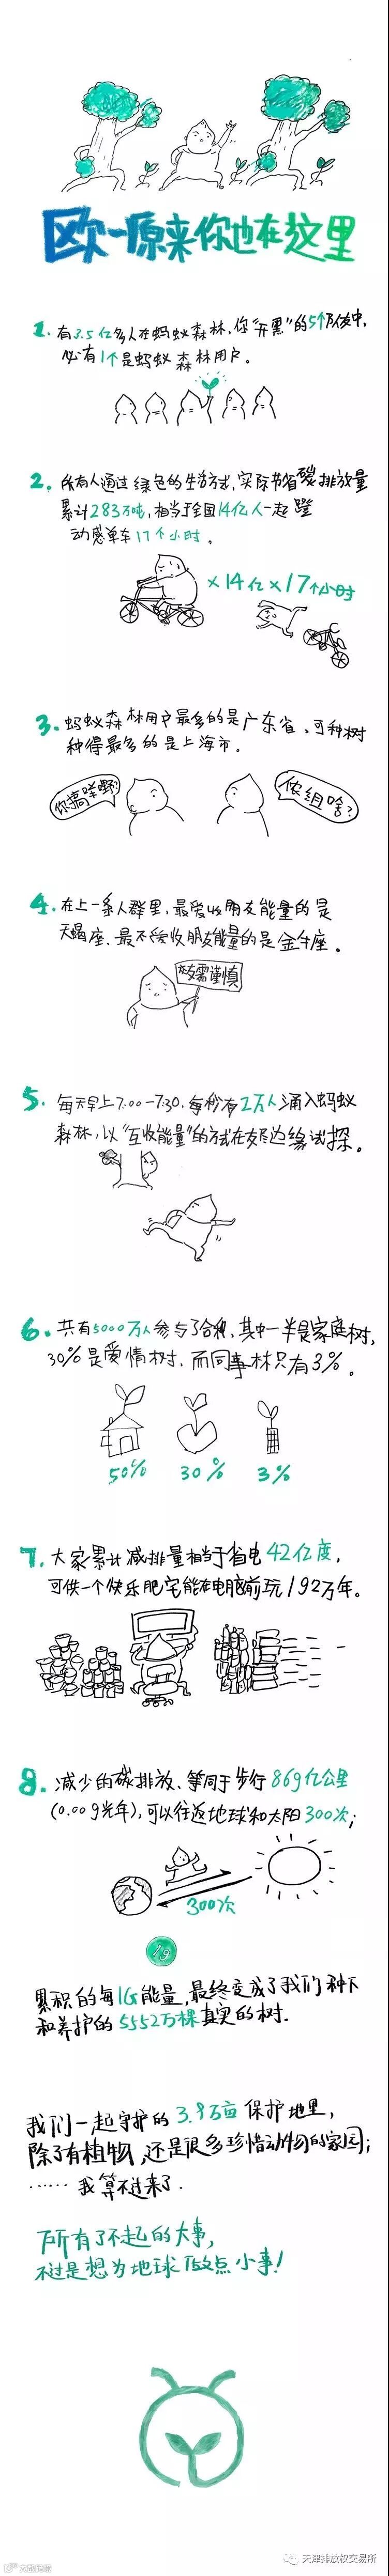 欧一原来你也在这里
1. 有3.5亿多人在蚂蚁森林,你“开黑”的5个队友中,
必有1个是蚂蚁森林用户。
2. 所有人通过绿色的生活方式,实际节省碳排放量
累计283万吨,相当于全国14亿人一起蹬
动感单车17个小时。
×14亿×17个小时
3. 蚂蚁森林用户最多的是广东省、可种树
种得最多的是上海市。
你搞咩嘢?
侬组啥?
4. 在上一条人群里,最爱收朋友能量的是
天蝎座、最不爱收朋友能量的是金牛座。
交友需谨慎
5. 每天早上7:00-7:30,每秒有2万人涌入蚂蚁
森林,以“互收能量”的方式在友尽边缘试探。
6. 共有5000万人参与了合种,其中一半是家庭树,
30%是爱情树,而同事林只有3%。
50% 30% 3%
7. 大家累计减排量相当于省电42亿度,
可供一个快乐肥宅能在电脑前玩192万年。
8. 减少的碳排放、等同于步行869亿公里
(0.009光年),可以往返地球和太阳300次;
300次
1g
累积的每1G能量,最终变成了我们种下
和养护的5552万棵真实的树.
我们一起守护的3.9万亩保护地里,
除了有植物,还是很多珍惜动物的家园;
……我算不过来了.
所有了不起的大事,
不过是想为地球做点小事!
天津排放权交易所